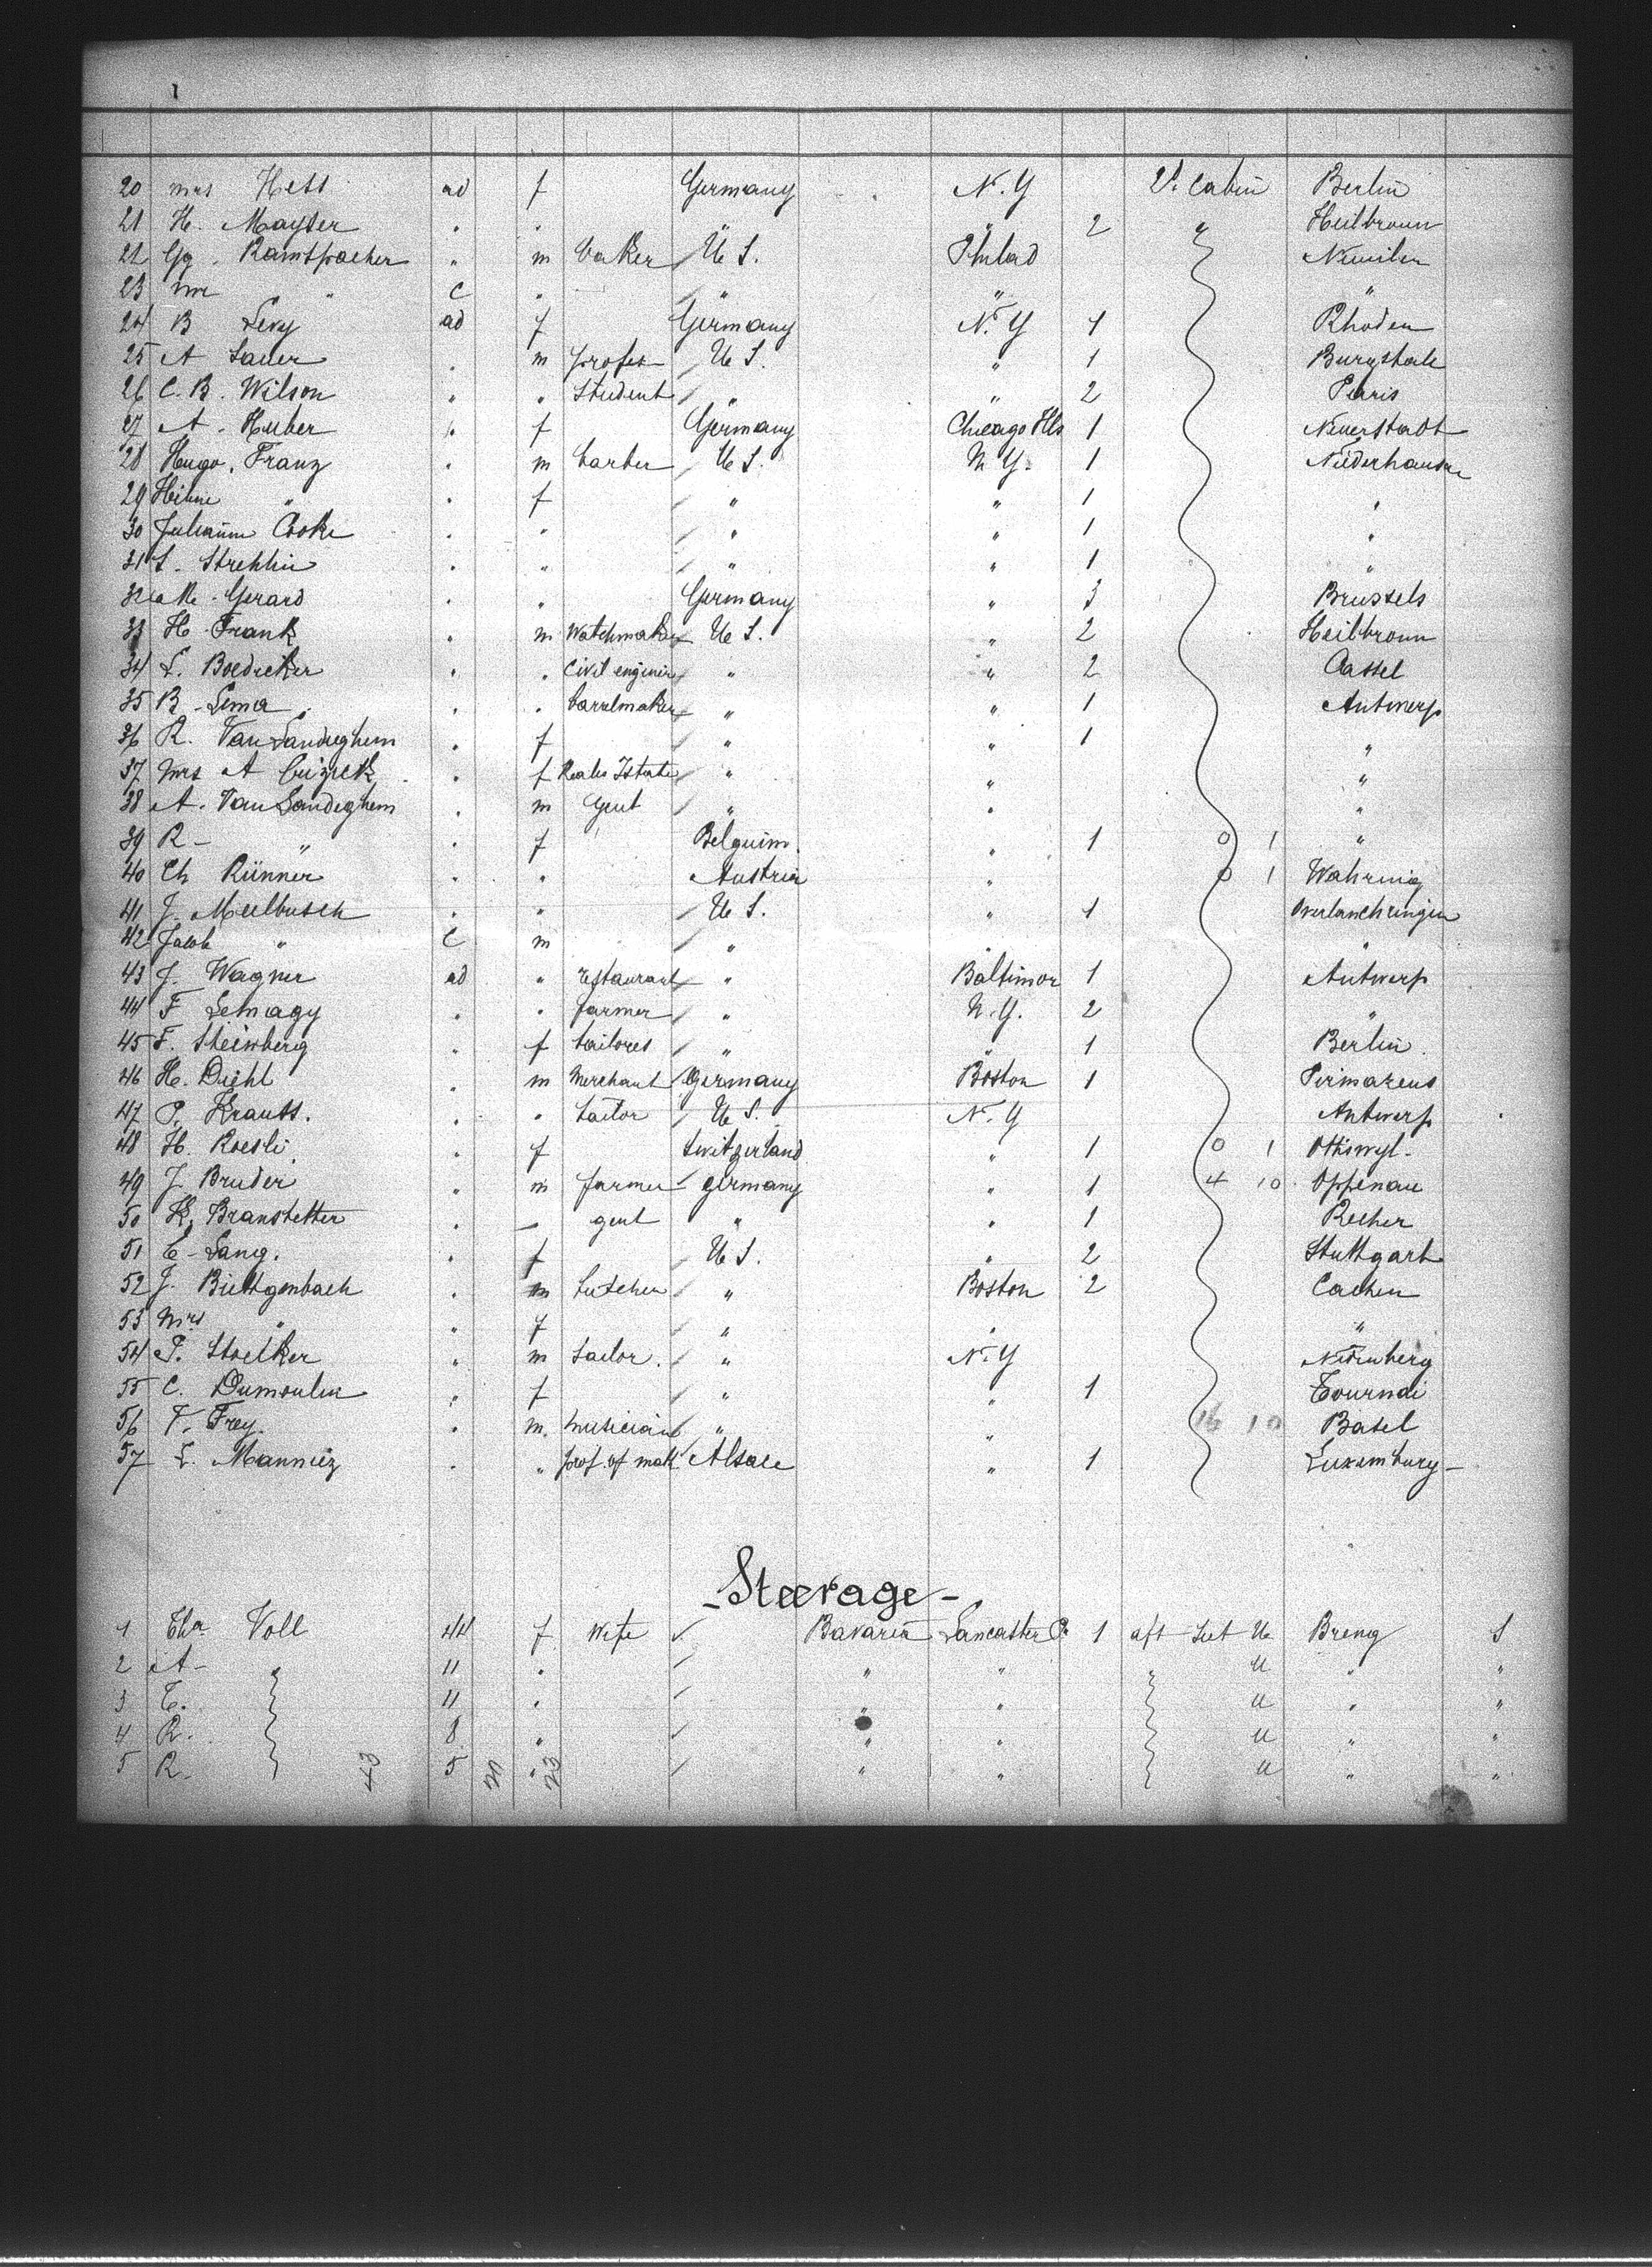 20 mrs Hess ad f Germany N. Y 2d. Cabin Berlin
21 H. Mayser " " " " 2 " Heilbronn
22 Gg. Ramspacher " m baker U S. Philad
23 " C " " " "
24 B Levy ad f Germany N. Y 1 Rhoden
25 A Sauer " m profes U S. " 1 Burgstale
26 C. B. Wilson " " Student " " 2 Paris
27 A. Huber " f Germany Chicago Ills 1 Neuerstadt
28 Hugo. Franz " m barber U S. N Y. 1 Niederhausen
29 " " f " " 1 "
30 Cooke " " " " 1 "
31 S. Strehlin " " " " 1 "
32 M. Gerard " " Germany " 3 Brussels
33 H. Frank " m Watchmaker U S. " 2 Heilbronn
34 L. Boedecker " " Civil enginer " " 2 Cassel
35 B. Lema " " barrelmaker " " 1 Antwerp
36 R. Van Landeghem " f " " 1 "
37 mrs A " f " " "
38 A. Van Landeghem " m Gent " " "
39 R - " " f Belguim. " 1 0 1 "
40 Ch Rünner " " Austria " 0 1 Wahring
41 J. Meelbusch " " U S. " 1
42 Jacob " C m " " "
43 J. Wagner ad " restaurant " Baltimor 1 Antwerp
44 F Lemagy " " farmer " N. Y. 2 "
45 F. Steinberg " f tailores " " 1 Berlin
46 H. Diehl " m Merchant Germany Boston 1 Pirmasens
47 P. Krauss. " " tailor U S. N. Y Antwerp
48 H. Roesli " f Switzerland " 1 0 1
49 J. Bruder " m farmer germany " 1 4 10 Oppenau
50 K. Branstetter " - gent " " 1 Recher
51 C - Lang. " f U S. " 2 Stuttgart
52 J. Buettgenbach " m butcher " Boston 2 Cachen
53 Mrs " " f " " "
54 P. Stoelker " m tailor. " N. Y Nürnberg
55 C. Dumoulin " f " " 1 Tournai
56 F. Frey. " m. musician " " 16 10 Basel
57 L. Manniez " " prof. of math Alsace " 1 Luxemburg -
- Steerage -
1 Voll 44 f Wife Bavaria Lancaster Pa 1 aft U Breng S
2 A - " 11 " " " " U " "
3 11 " " " U " "
4 R. 8 " " " U " "
5 R. 43 5 20 " 23 " " U " "